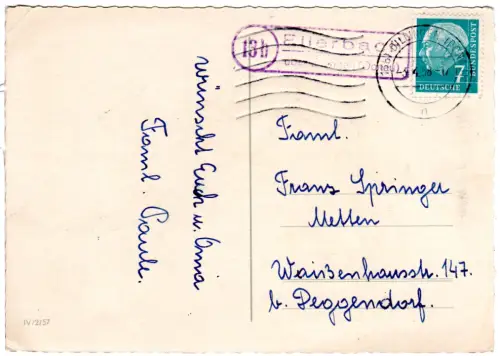 13b
Ellerbach
7
DEUTSCHE
BUNDESPOST
wünscht Euch u. Anna
Faml. Paule.
Faml.
Franz Springer
Metten
Waißenhausstr. 147.
b. Deggendorf.